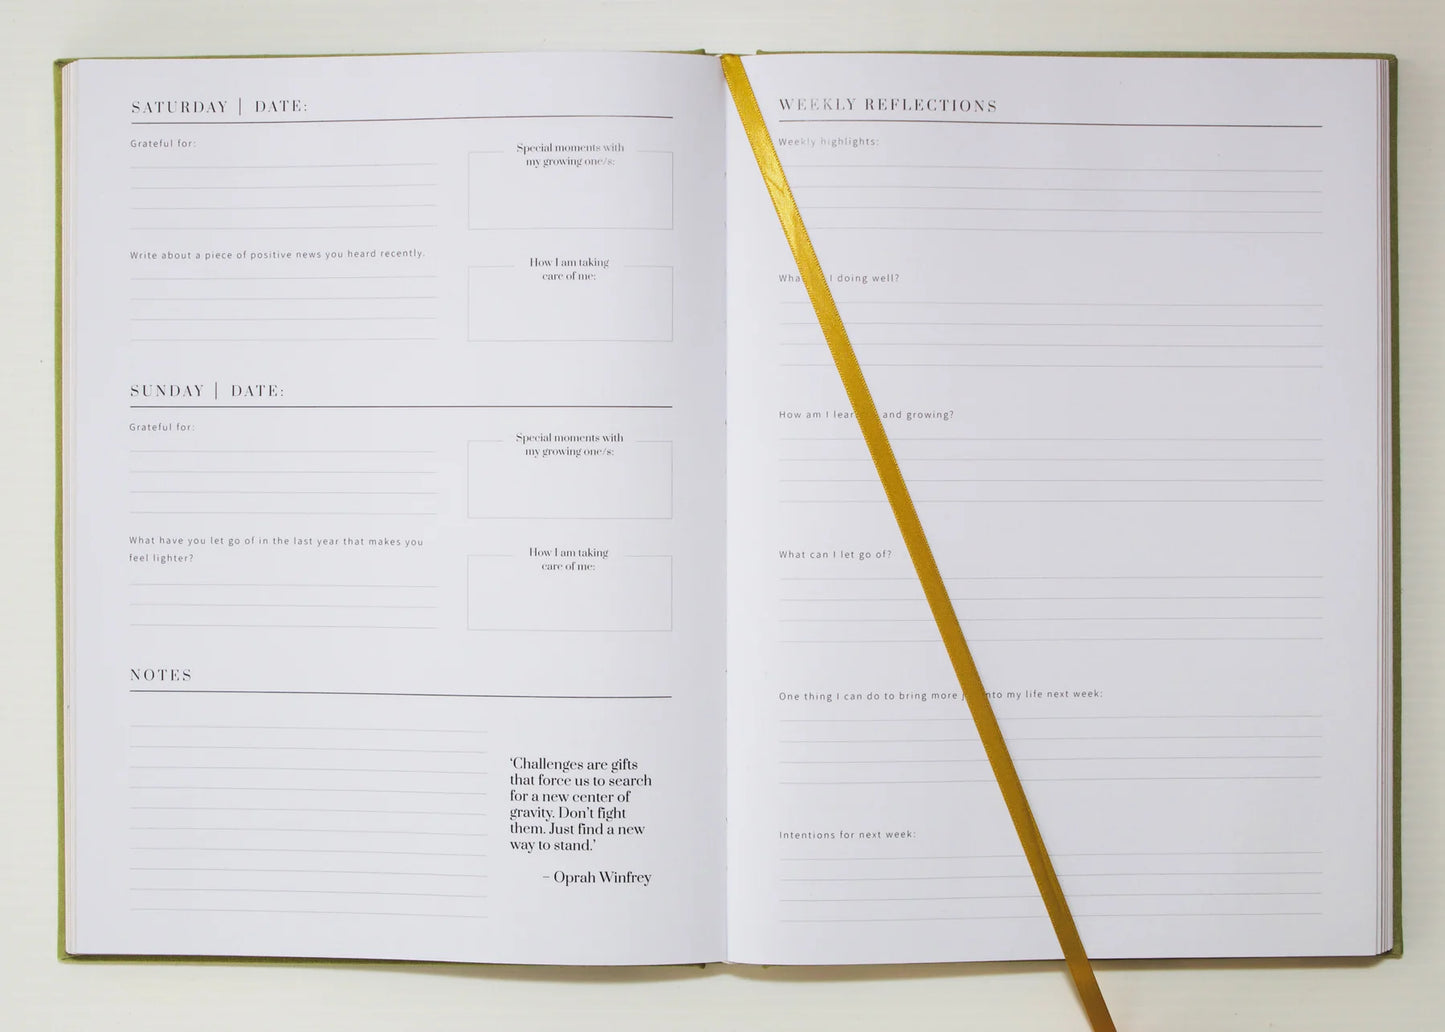 SATURDAY | DATE:
Grateful for:
Special moments with
my growing one/s:
Write about a piece of positive news you heard recently.
How I am taking
care of me:
SUNDAY | DATE:
Grateful for:
Special moments with
my growing one/s:
What have you let go of in the last year that makes you
feel lighter?
How I am taking
care of me:
NOTES
‘Challenges are gifts
that force us to search
for a new center of
gravity. Don’t fight
them. Just find a new
way to stand.’
– Oprah Winfrey
WEEKLY REFLECTIONS
Weekly highlights:
I doing well?
How am I and growing?
What can I let go of?
One thing I can do to bring more into my life next week:
Intentions for next week: